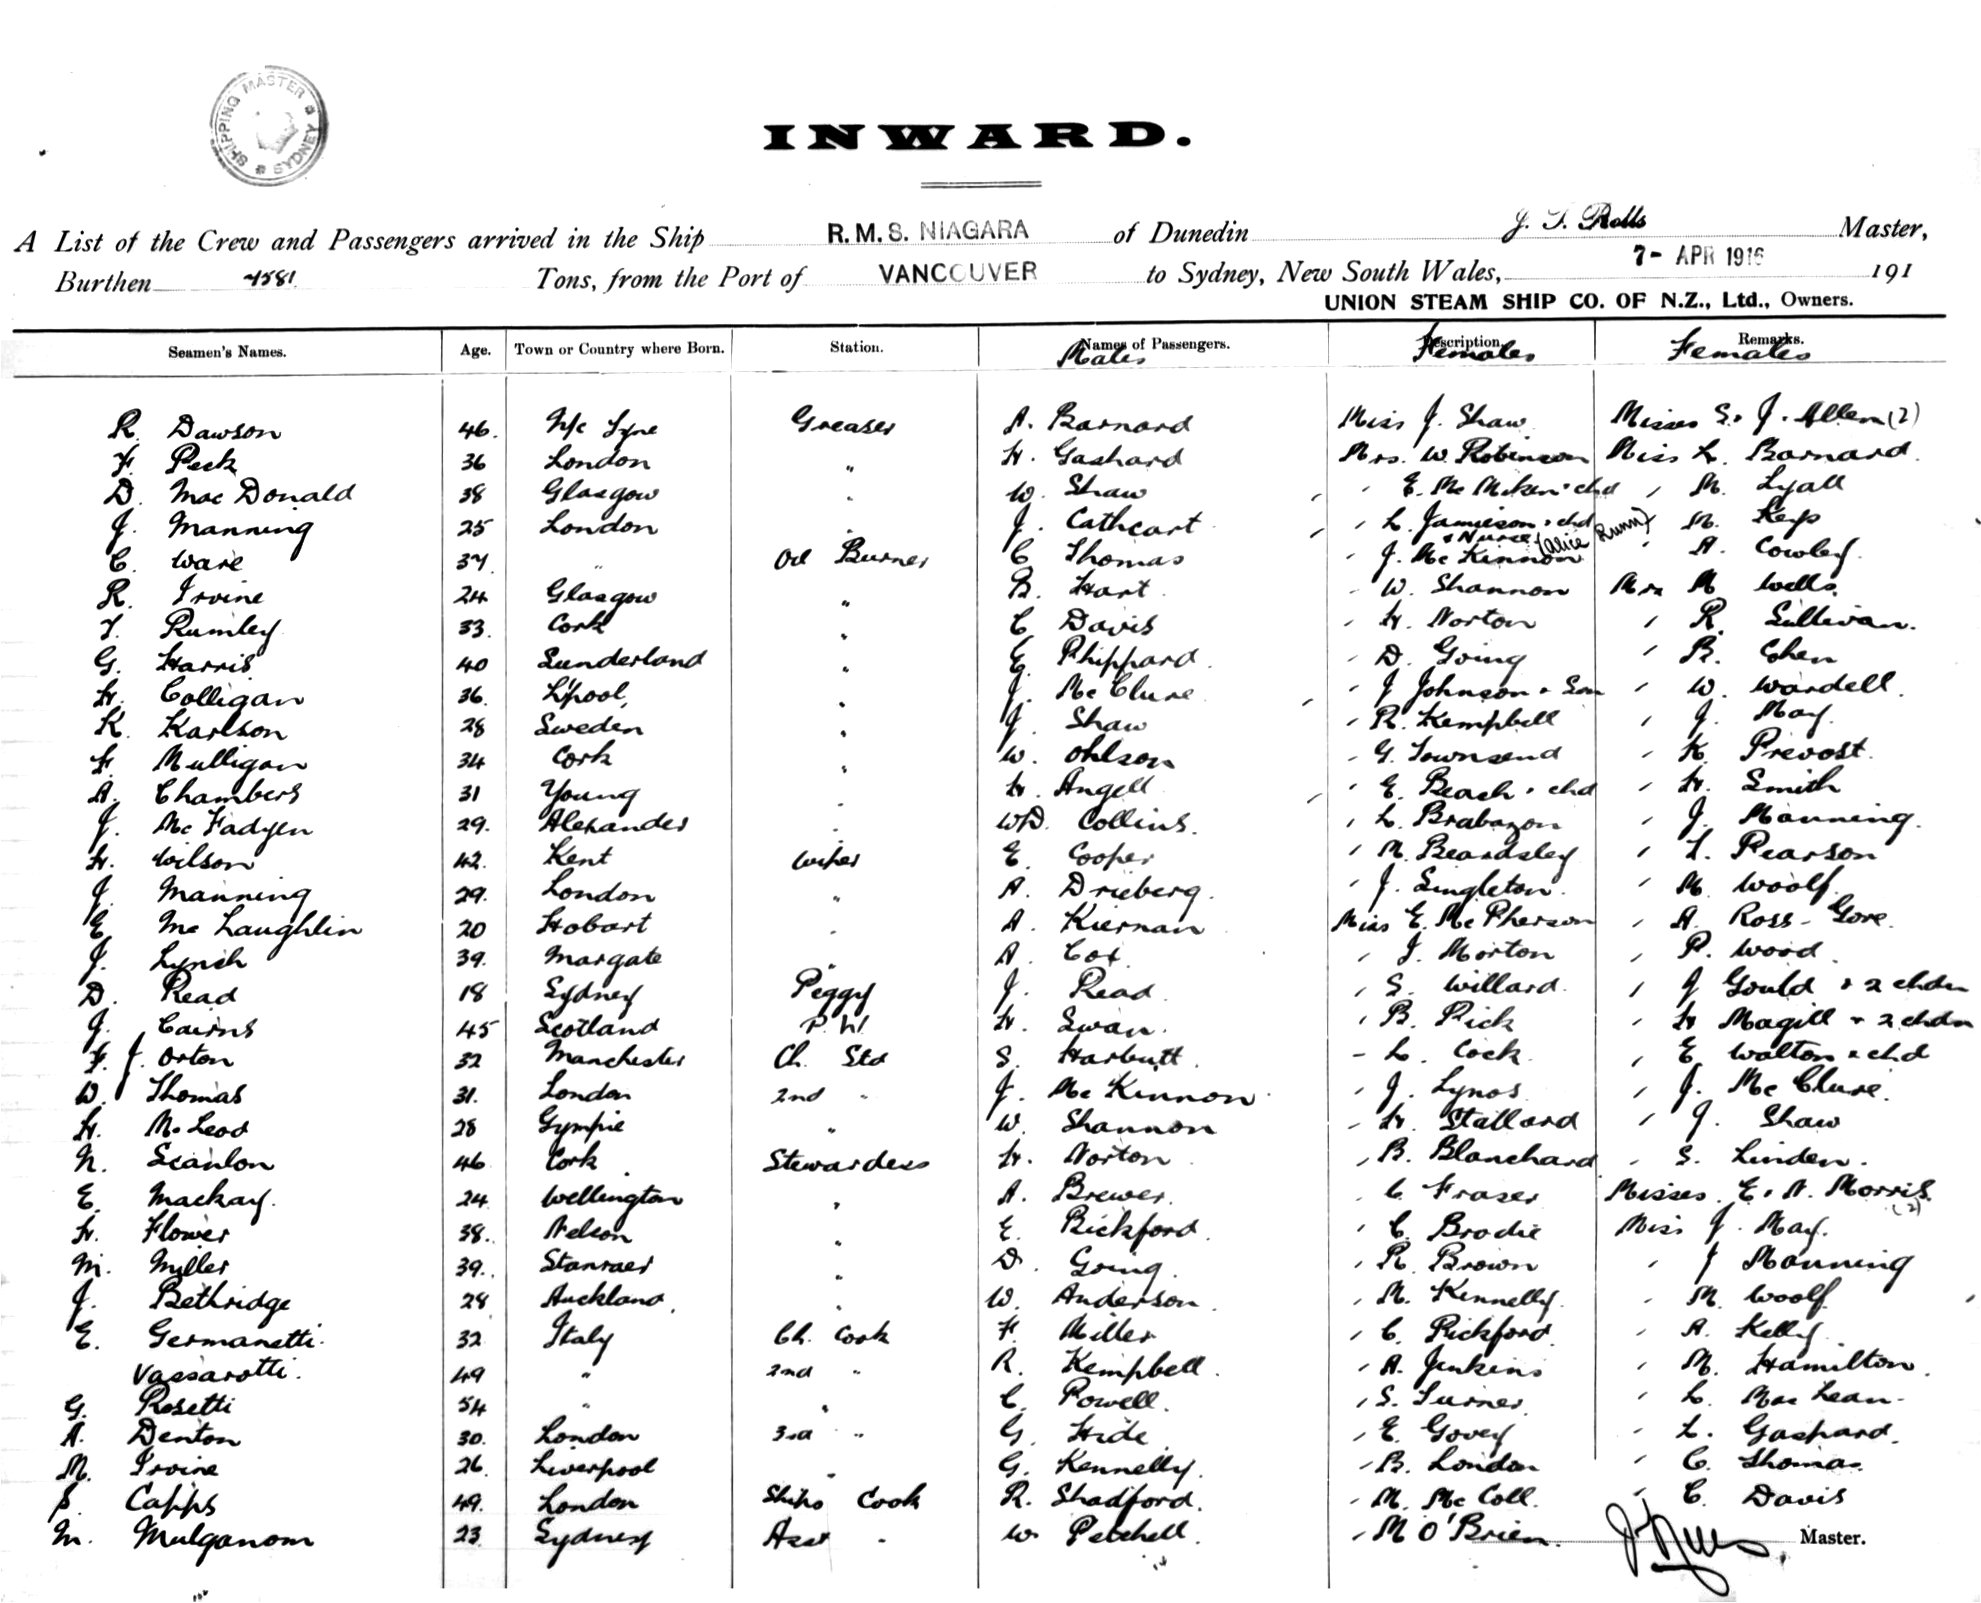 SHIPPING MASTER SYDNEY
INWARD.
A List of the Crew and Passengers arrived in the Ship R.M.S. NIAGARA of Dunedin J. T. Rolls Master,
Burthen 4581 Tons, from the Port of VANCOUVER to Sydney, New South Wales, 7- APR 1916 191
UNION STEAM SHIP CO. OF N.Z., Ltd., Owners.
Seamen's Names. Age. Town or Country where Born. Station. Names of Passengers. Description Remarks.
Males Females Females
R. Dawson 46. N/c Tyne Greaser A. Barnard Miss J. Shaw Misses S. J. Allen (2)
F. Peck 36 London " H. Gashard Mrs. W. Robinson Miss L. Barnard.
D. MacDonald 38 Glasgow " W. Shaw " E. McMiken & chd " M. Lyall
J. Manning 25 London " J. Cathcart " L. Jamieson & chd " M. Keys
& Nurse (Alice Runn)
C. Ware 37. " Oil Burner C Thomas " J. McKinnon " A. Cowley.
R. Irvine 24 Glasgow " B. Hart. " W. Shannon Mrs M Wells.
T. Rumley 33. Cork " C Davis " H. Norton " R. Sullivan.
G. Harris 40 Sunderland " E. Phippard. " D. Going " B. Cohen
H. Colligan 36. L'pool, " J. McClure " J Johnson & Son " W. Wardell.
K. Karlson 28 Sweden " J. Shaw " R. Kempbell " J. May.
F. Mulligan 34 Cork " W. Ohlson " G. Townsend " K. Prevost.
A. Chambers 31 Young " H. Angell " E. Beach & chd " H. Smith
J. McFadyen 29. Alexander " WD. Collins. " L. Brabazon " J. Manning.
H. Wilson 42. Kent Wiper E. Cooper " M. Beardsley " L. Pearson
J. Manning 29. London " A. Drieberg. " J. Singleton. " M. Woolf.
E. McLaughlin 20 Hobart " A. Kiernan Miss E. McPherson " A. Ross-Gore.
J. Lynch 39. Margate " A. Cox " J. Morton " P. Wood.
D. Read 18 Sydney Peggy J. Read " S. Willard. " J Gould & 2 chdn
J. Cairns 45 Scotland P. W. H. Swan. " B. Pick " H Magill & 2 chdn
F. J. Orton 32 Manchester Ch. Std S. Harbutt. " L. Cock. " E. Walton & chd
W. Thomas 31. London 2nd " J. McKinnon " J. Lynos " J. McClure.
H. McLeod 28 Gympie " W. Shannon " H. Stallard " J. Shaw
N. Scanlon 46 Cork. Stewardess H. Norton " B. Blanchard " S. Linden.
E. Mackay. 24 Wellington " A. Brewer. " C Fraser Misses. E. A. Morris. (2)
H. Flower 38. Nelson " E. Bickford. " C Brodie Miss J. May.
M. Miller 39. Stanraer " D. Going. " R. Brown " J Manning
J. Bethridge 28 Auckland. " W. Anderson. " M. Kennelly. " M Woolf.
E. Germanetti. 32 Italy Ch. Cook F. Miller " C. Pickford. " A. Kelly.
Vassarotti. 49 " 2nd " R. Kempbell. " A. Jenkins " M. Hamilton.
G. Rosetti 54 " " C. Powell. " S. Turner. " L. MacLean.
A. Denton 30. London 3rd " G. Hide. " E. Govey " L. Gashard.
M. Irvine 26. Liverpool " G. Kennelly. " B. London " C. Thomas.
S. Capps 49. London Ships Cook R. Shadford. " M. McColl. " C. Davis
M. Mulganom 23. Sydney Asst " W. Petchell. " M O'Brien. Master.